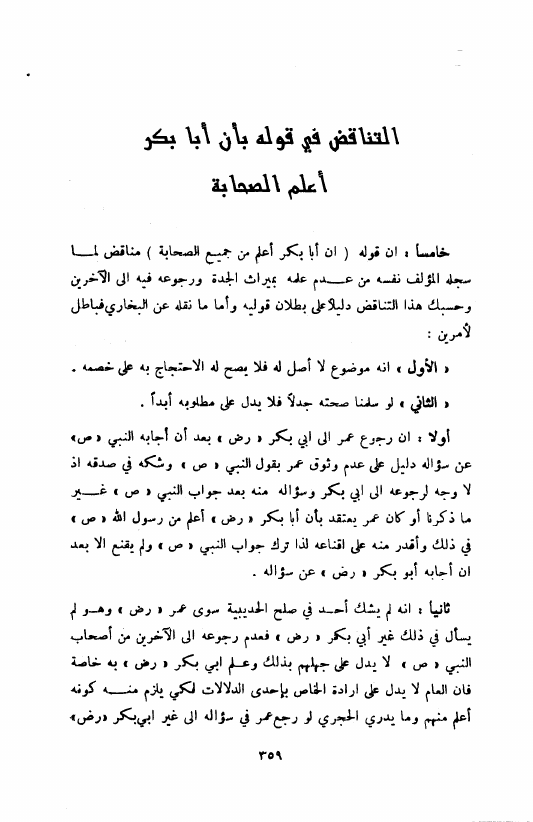 التناقض في قوله بأن أبا بكر
أعلم الصحابة
خامساً : ان قوله ( ان أبا بكر أعلم من جميع الصحابة ) مناقض لما
سجله المؤلف نفسه من عدم علمه بميراث الجدة ورجوعه فيه الى الآخرين
وحسبك هذا التناقض دليلاً على بطلان قوليه وأما ما نقله عن البخاري فباطل
لأمرين :
« الأول » انه موضوع لا أصل له فلا يصح له الاحتجاج به على خصمه .
« الثاني » لو سلمنا صحته جدلاً فلا يدل على مطلوبه أبداً .
أولا : ان رجوع عمر الى ابي بكر « رض » بعد أن أجابه النبي « ص »
عن سؤاله دليل على عدم وثوق عمر بقول النبي « ص » وشكه في صدقه اذ
لا وجه لرجوعه الى ابي بكر وسؤاله منه بعد جواب النبي « ص » غير
ما ذكرنا أو كان عمر يعتقد بأن أبا بكر « رض » أعلم من رسول الله « ص »
في ذلك وأقدر منه على اقناعه لذا ترك جواب النبي « ص » ولم يقنع الا بعد
ان أجابه أبو بكر « رض » عن سؤاله .
ثانياً : انه لم يشك أحد في صلح الحديبية سوى عمر « رض » وهو لم
يسأل في ذلك غير أبي بكر « رض » فعدم رجوعه الى الآخرين من أصحاب
النبي « ص » لا يدل على جهلهم بذلك وعلم ابي بكر « رض » به خاصة
فان العام لا يدل على ارادة الخاص بإحدى الدلالات لكي يلزم منه كونه
أعلم منهم وما يدري الحجري لو رجع عمر في سؤاله الى غير ابي بكر « رض »
٣٥٩